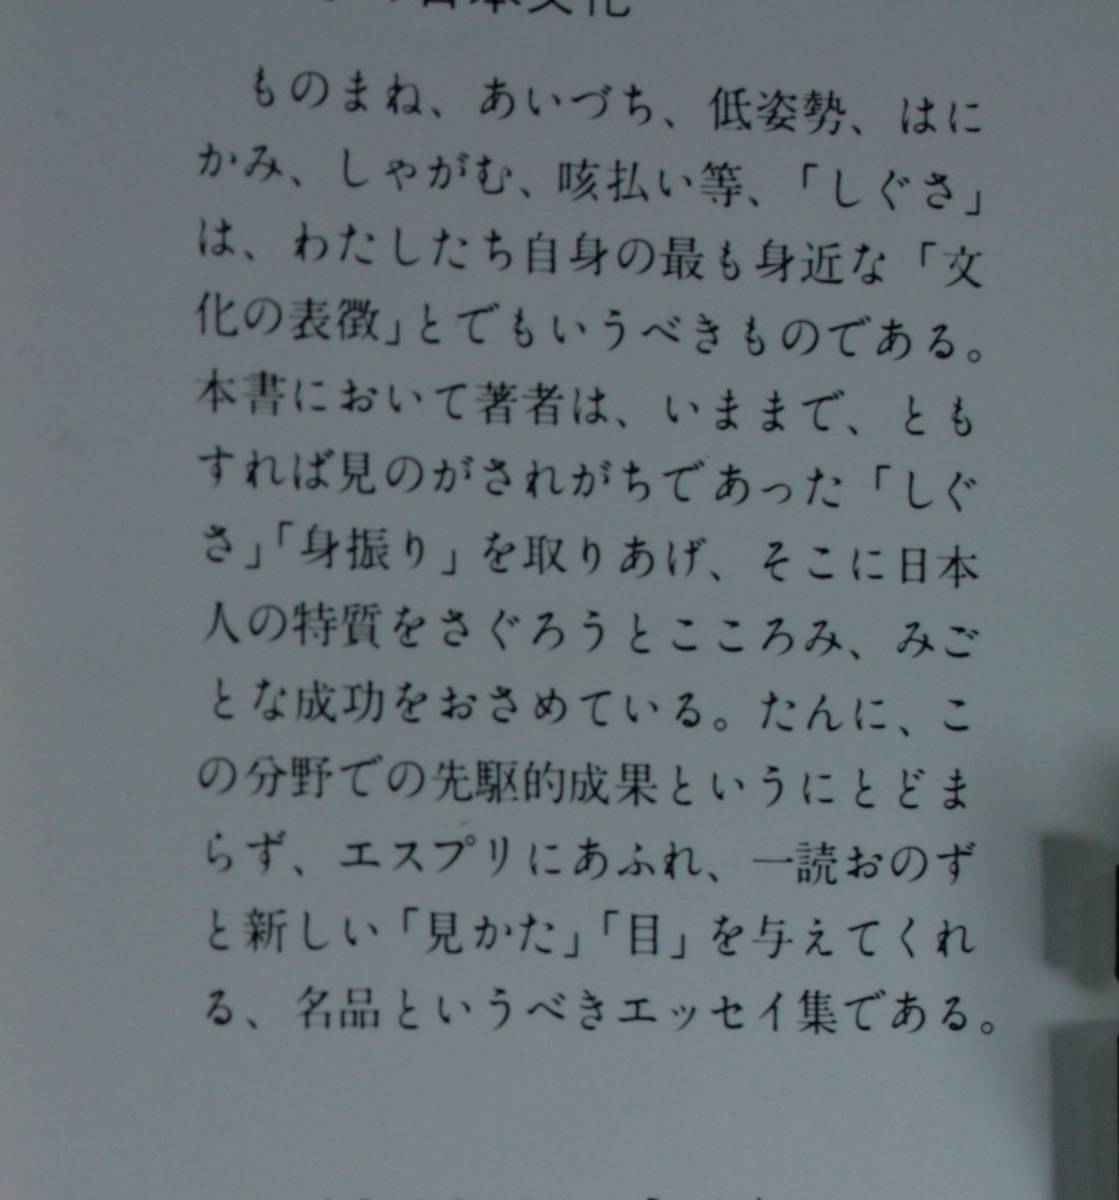 日本文化
ものまね、あいづち、低姿勢、はに
かみ、しゃがむ、咳払い等、「しぐさ」
は、わたしたち自身の最も身近な「文
化の表徴」とでもいうべきものである。
本書において著者は、いままで、とも
すれば見のがされがちであった「しぐ
さ」「身振り」を取りあげ、そこに日本
人の特質をさぐろうとこころみ、みご
とな成功をおさめている。たんに、こ
の分野での先駆的成果というにとどま
らず、エスプリにあふれ、一読おのず
と新しい「見かた」「目」を与えてくれ
る、名品というべきエッセイ集である。